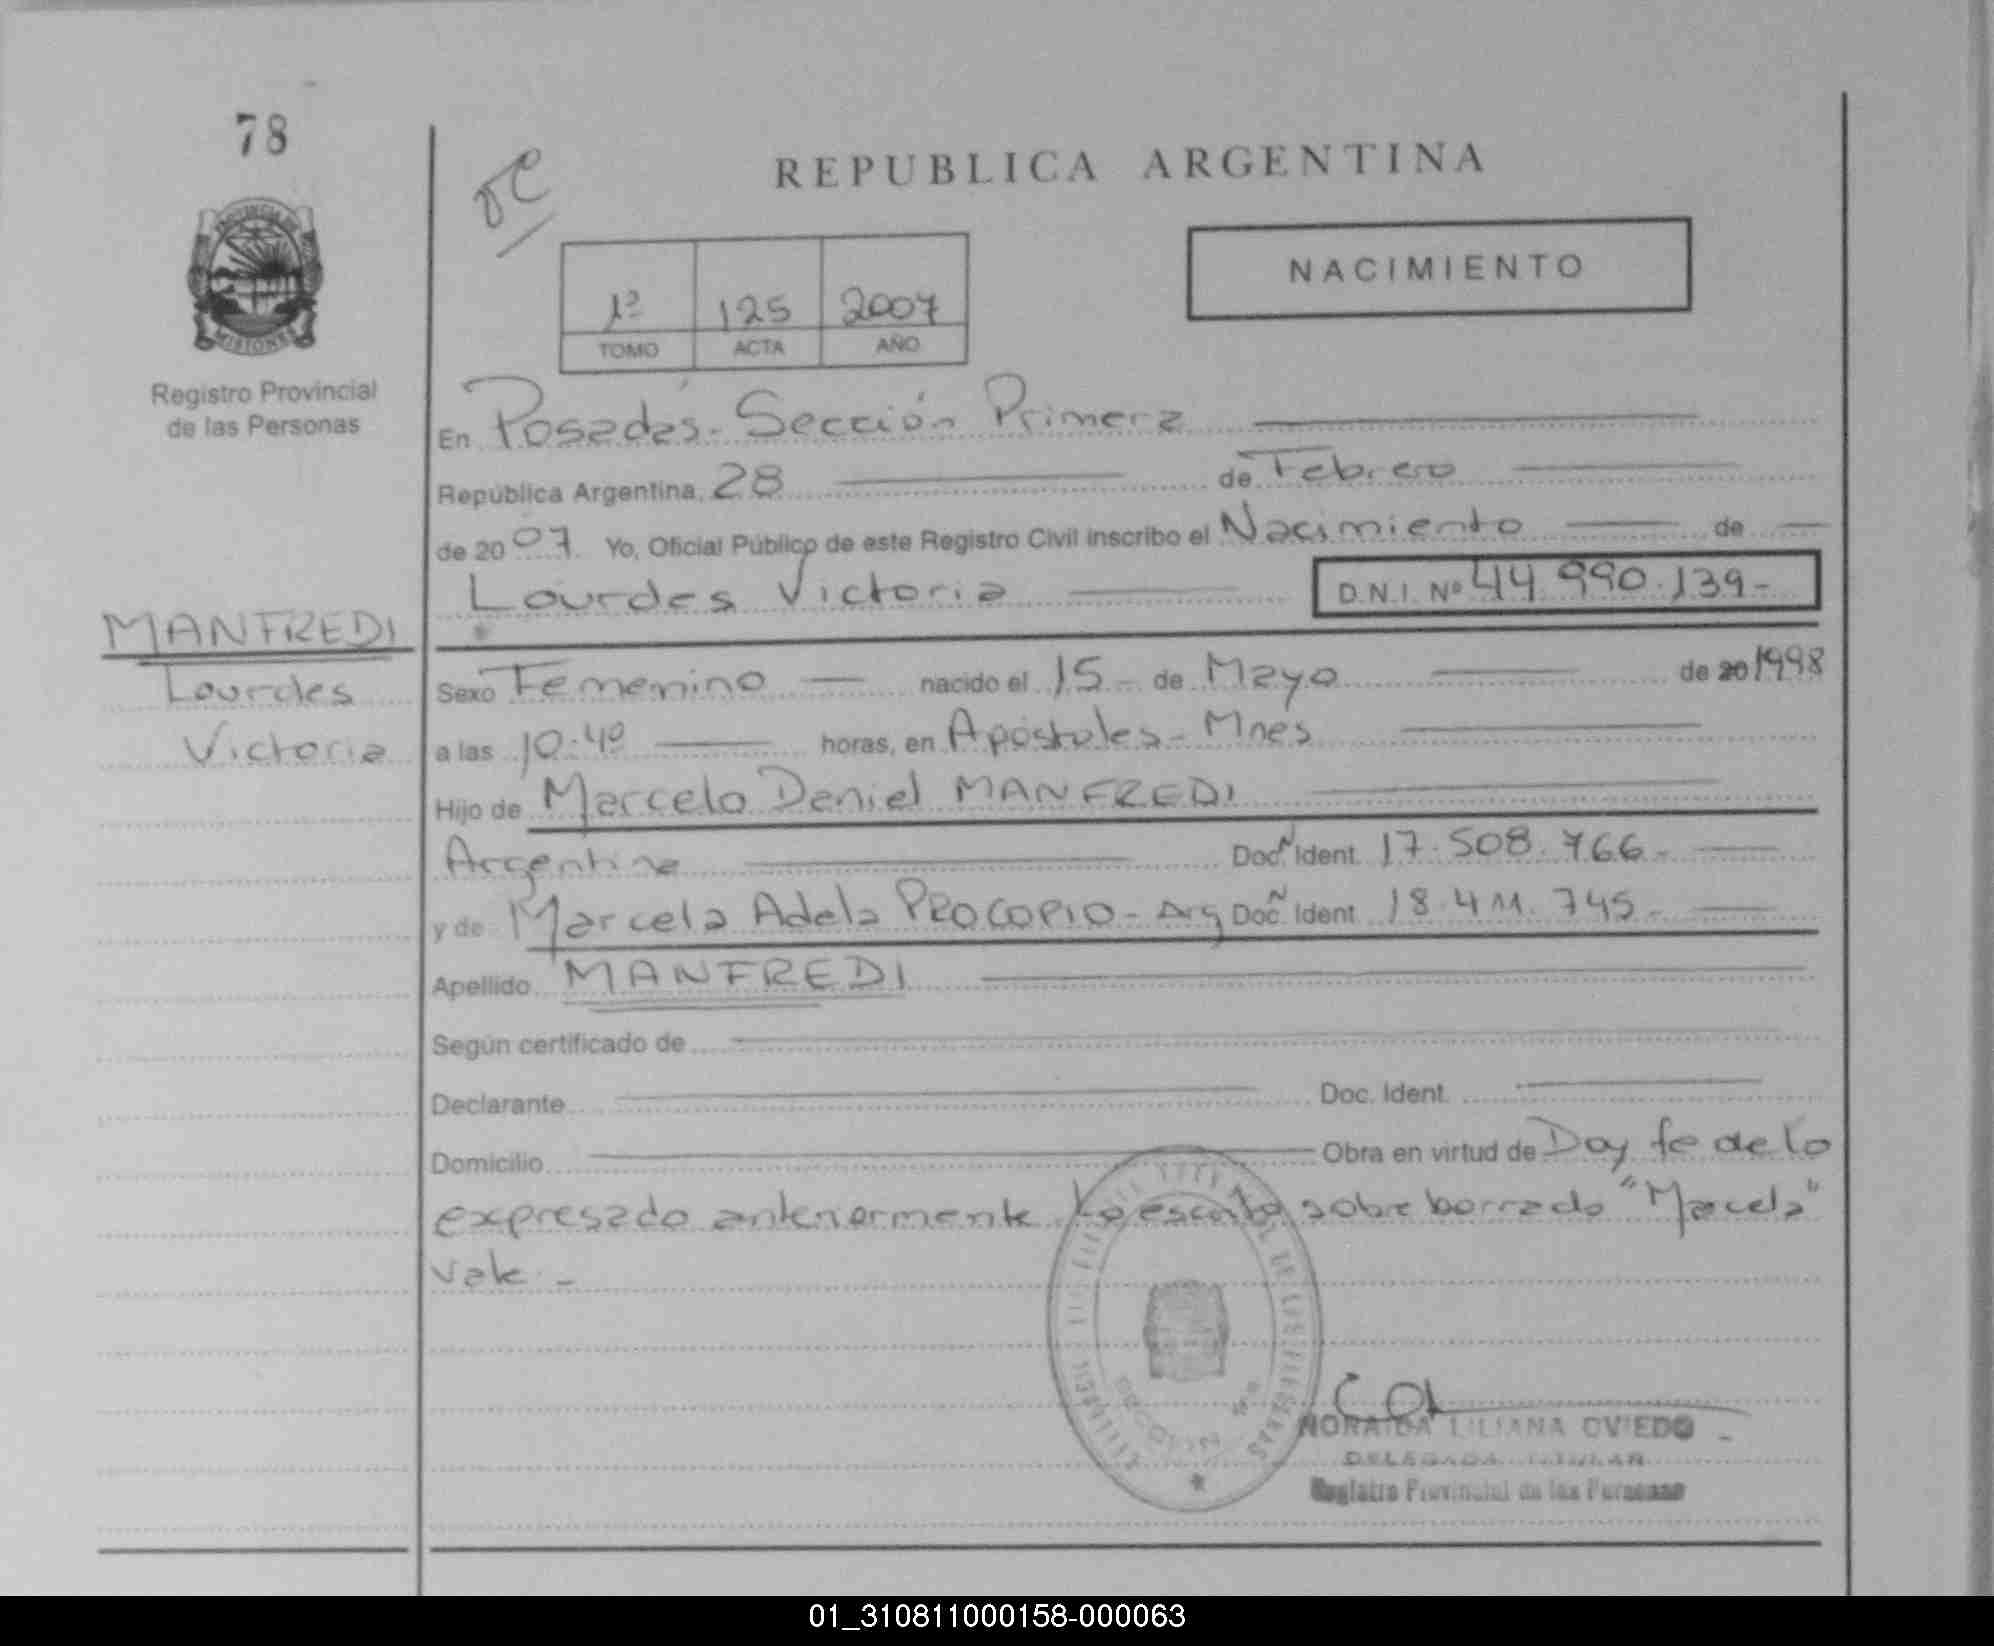 78
PROVINCIA DE
MISIONES
Registro Provincial
de las Personas
MANFREDI
Lourdes
Victoria
REPUBLICA ARGENTINA
NACIMIENTO
1º 125 2007
TOMO ACTA AÑO
En Posadas - Sección Primera
República Argentina, 28 de Febrero
de 2007. Yo, Oficial Público de este Registro Civil inscribo el Nacimiento de
Lourdes Victoria D.N.I. Nº 44.990.139-
Sexo Femenino nacido el 15 - de Mayo de 20 1998
a las 10:40 horas, en Apóstoles - Mnes
Hijo de Marcelo Daniel MANFREDI
Argentina Doc. N Ident. 17.508.766-
y de Marcela Adela PROCOPIO - Arg Doc. N Ident. 18.411.745-
Apellido MANFREDI
Según certificado de
Declarante Doc. Ident.
Domicilio Obra en virtud de Doy fe de lo
expresado anteriormente Lo escrito sobre borrado "Marcela"
vale.-
NORAIDA LILIANA OVIEDO
DELEGADA TITULAR
Registro Provincial de las Personas
01_310811000158-000063